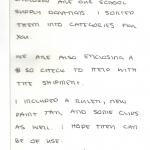 ENCLOSED ARE OUR SCHOOL
SUPPLY DONATIONS. I SORTED
THEM INTO CATEGORIES FOR
YOU.
WE ARE ALSO ENCLOSING A
$50 CHECK TO HELP WITH
THE SHIPMENT.
I INCLUDED A RULER, NEW
PAINT
AND SOME
AS WELL. I HOPE THEY CAN
BE OF USE.